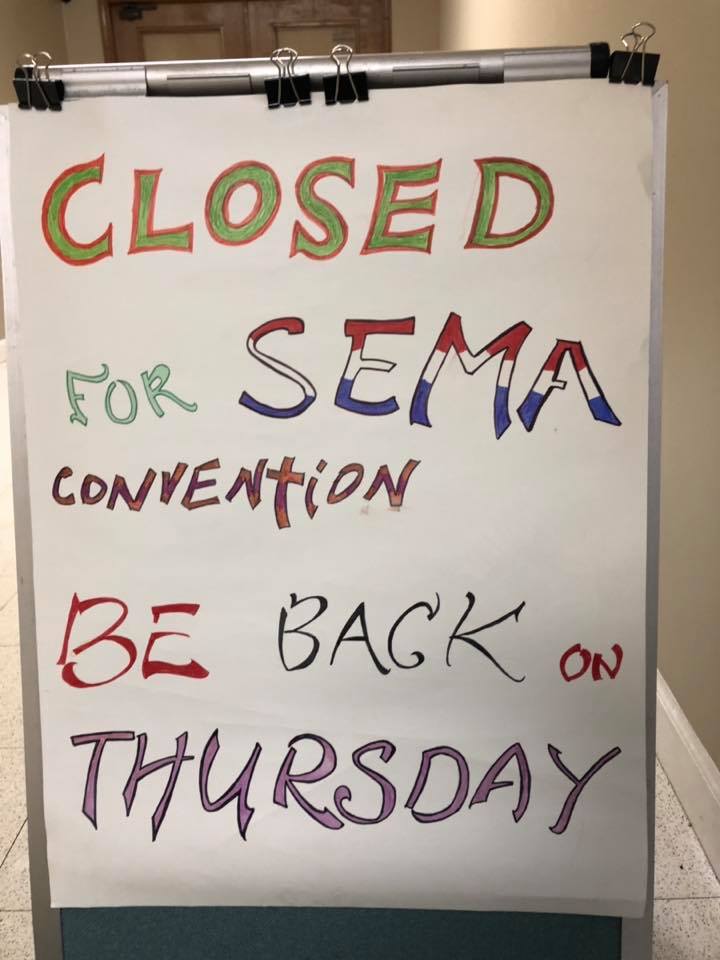 CLOSED
FOR SEMA
CONVENTION
BE BACK ON
THURSDAY